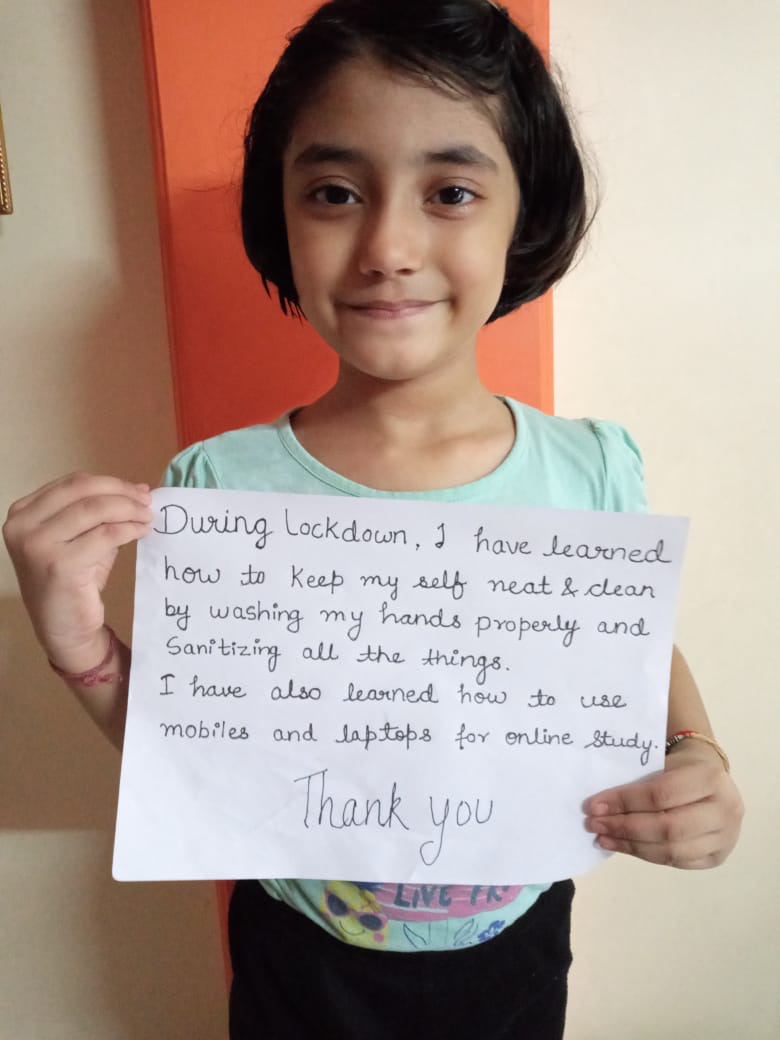 During Lockdown, I have learned
how to keep my self neat & clean
by washing my hands properly and
Sanitizing all the things.
I have also learned how to use
mobiles and laptops for online study.
Thank you
LIVE